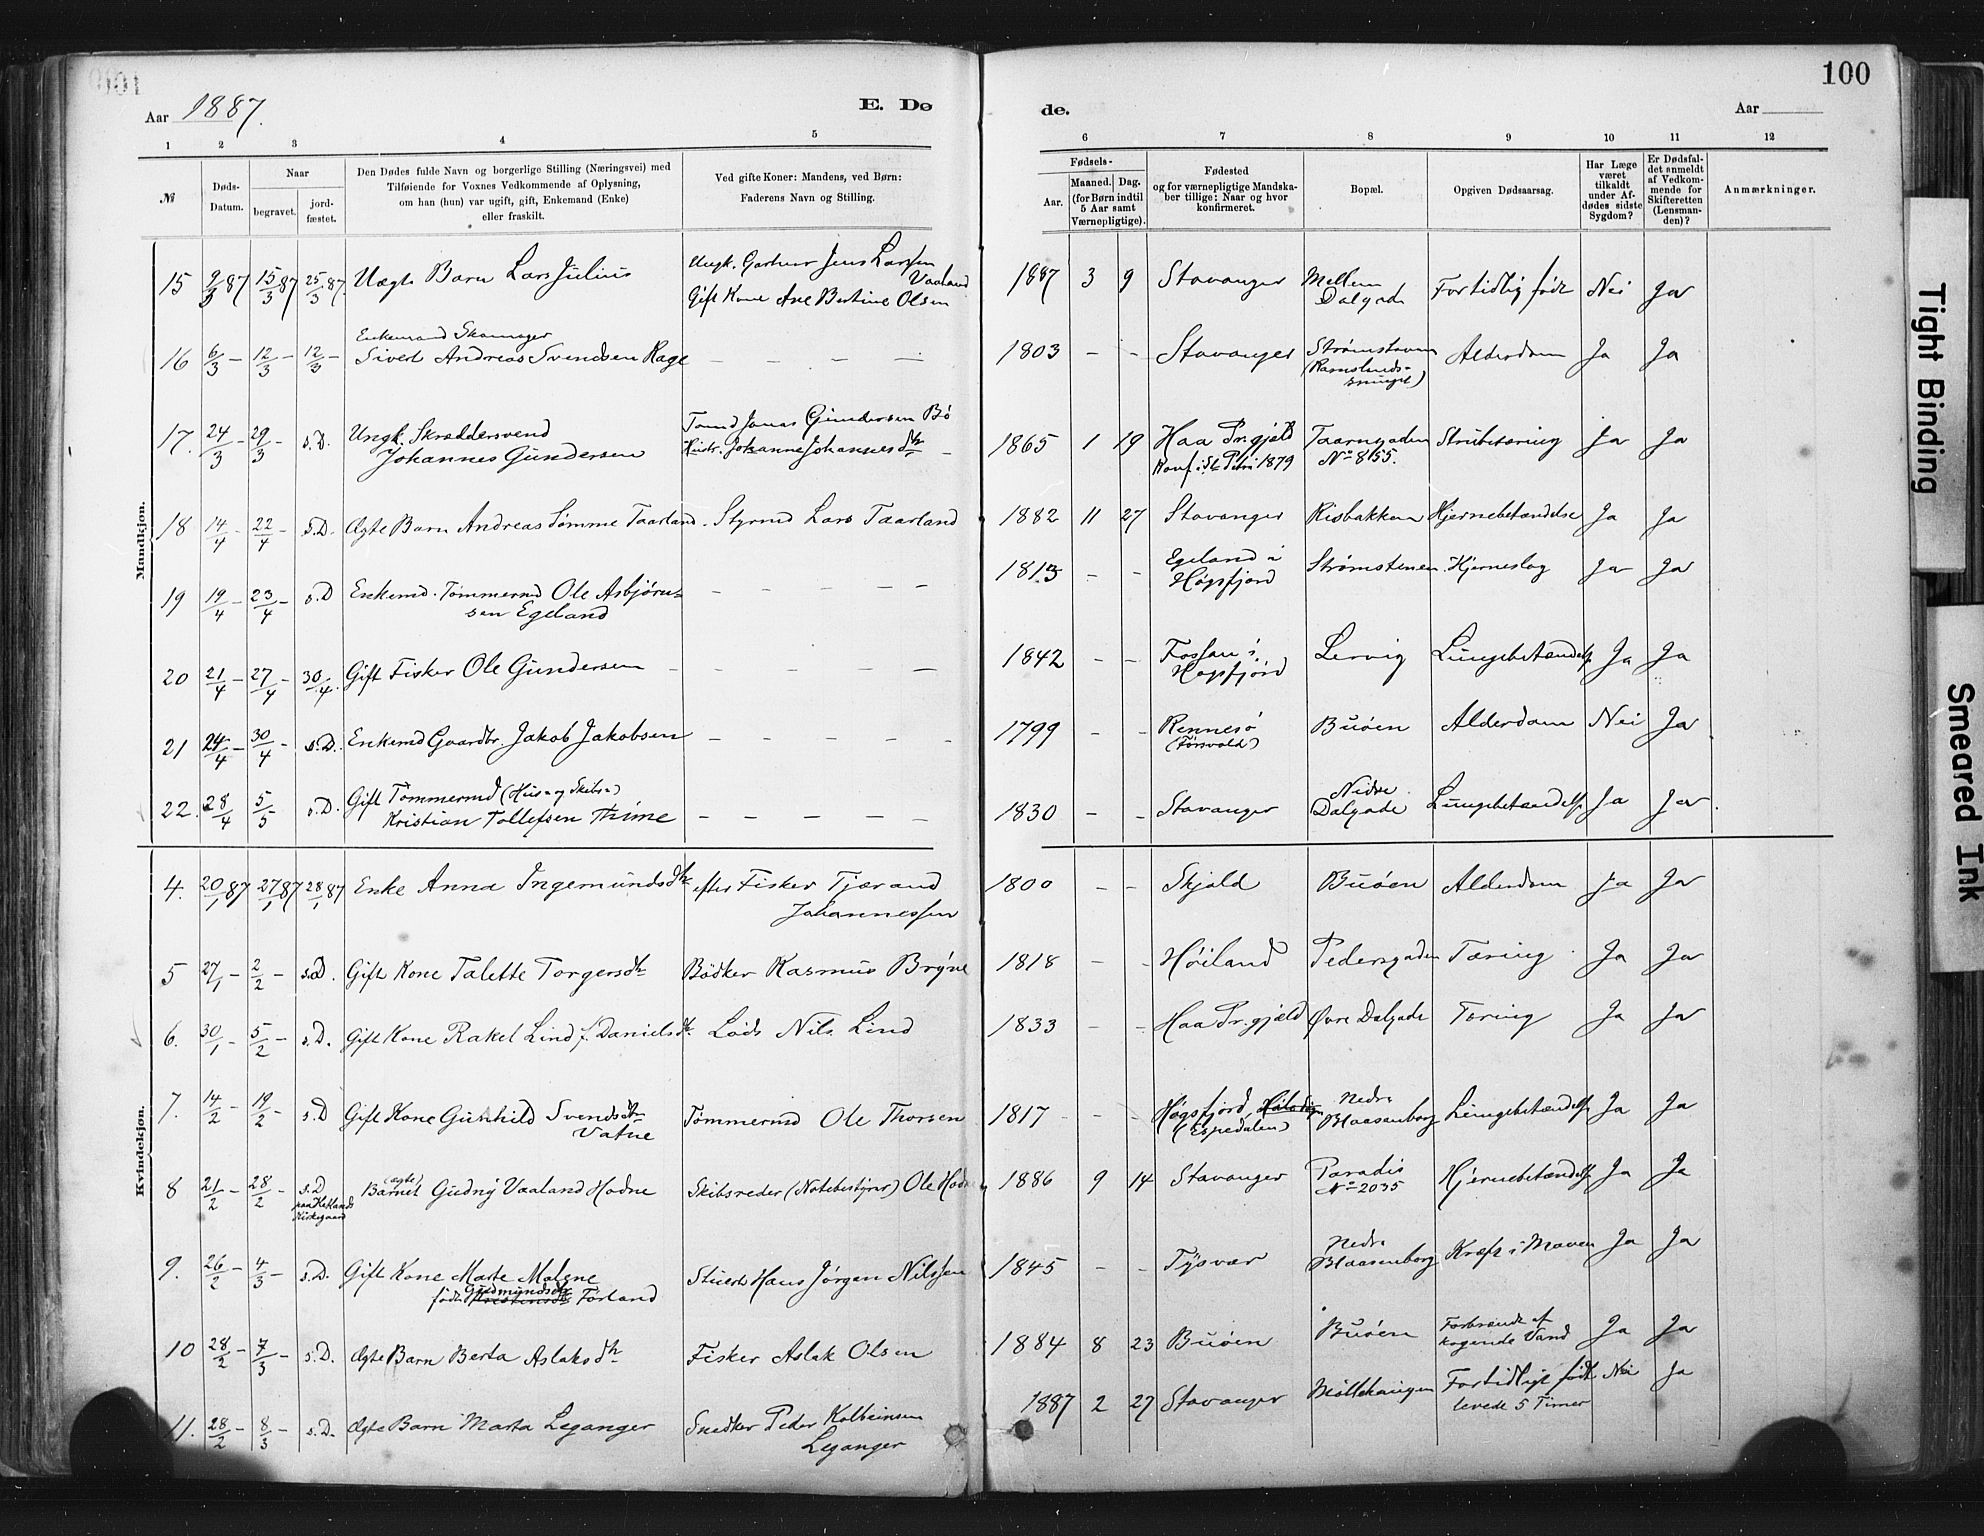 100
Aar 1887.
E. Dø
de.
Aar
1 2 3 4 5 6 7 8 9 10 11 12
№
Døds-Datum.
Naar
begravet.
jord-fæstet.
Den Dødes fulde Navn og borgerlige Stilling (Næringsvei) med
Tilføiende for Voxnes Vedkommende af Oplysning,
om han (hun) var ugift, gift, Enkemand (Enke)
eller fraskilt.
Ved gifte Koner: Mandens, ved Børn:
Faderens Navn og Stilling.
Fødsels-
Aar.
Maaned. Dag.
(for Børn indtil
5 Aar samt
Værnepligtige).
Fødested
og for værnepligtige Mandska-
ber tillige: Naar og hvor
konfirmeret.
Bopæl.
Opgiven Dødsaarsag.
Har Læge
været
tilkaldt
under Af-
dødes sidste
Sygdom?
Er Dødsfal-
det anmeldt
af Vedkom-
mende for
Skifteretten
(Lensman-
den)?
Anmærkninger.
Mandkjøn.
15 9/3 87 15/3 87 25/3 87. Uægte Barn Lars Julius Ungk. Gartner Jens Larssen Vaaland Gift Kone Ane Bertine Olsen 1887 3 9 Stavanger Mellem Dalgade Fortidlig født Nei Ja
16 6/3 – 12/3 – 12/3 – Enkemand Skomager Sivert Andreas Svendsen Rage – – – – 1803 – – Stavanger Alderdom Ja Ja
17. 24/3 – 29/3 – s.D. Ungk. Skræddersvend Johannes Gundersen Jonas Gundersen Bø Hustr. Johanne Johannesdtr – 1865 1 19 Haa Pr.gjeld Konf. i St. Petri 1879 Taarngaden No 8155. Strubetæring Ja Ja
18 14/4 – 22/4 – s.D. Ægte Barn Andreas Sømme Taarland. Styrmd Lars Taarland 1882 11 27 Stavanger Risbakken Hjernebetændelse Ja Ja
19 19/4 – 23/4 – s.D Enkemd. Tømmermd Ole Asbjørnsen Egeland – – – – – 1813 – – Egeland i Høgsfjord Strømstenen Hjerneslag Ja Ja
20 21/4 – 27/4 – 30/4. Gift Fisker Ole Gundersen – – – – – 1842 – – Fossan i Høgsfjord Lervig Lungebetændelse Ja Ja
21 24/4 – 30/4 – s.D. Enkemd Gaardbr. Jakob Jakobsen – – – – – 1799 – – Rennesø Buøen Alderdom Nei Ja
22. 28/4 5/5 s.D. Gift Tømmermd (Hus- og Skibs-) Kristian Tollefsen Thime – – – – – 1830 – – Stavanger Nedre Dalgade Lungebetændelse Ja Ja.
Kvindekjøn.
4. 20/1 87 27/1 87 28/1 87 Enke Anna Ingemundsdtr efter Fisker Tjerand Johannessen 1800 – – Skjold Buøen Alderdom Ja Ja
5 27/1 – 2/2 – s.D. Gift Kone Talette Torgersdtr Bødker Rasmus Bryne 1818 – – Høiland Pedersgaden Tæring Ja Ja
6. 30/1 – 5/2 – s.D. Gift Kone Rakel Lind f. Danielsdtr. Lods Nils Lind 1833 – – Haa Pr.gjæld Øvre Dalgade Tæring Ja Ja
7. 14/2 – 19/2 – s.D Gift Kone Gunhild Svendsdtr Vatne Tømmermd Ole Thorsen 1817 – – Høgsfjord, (Espedalen) Nedre Blaasenborg Lungebetændelse Ja Ja
8 21/2 – 28/2 – s.D paa Hetlands Kirkegaard ægte Barnet Gudny Vaaland Hodne Skibsreder (Notebestyrer) Ole Hodne 1886 9 14 Stavanger Paradis No 2035 Hjernebetændelse Ja Ja
9. 26/2 – 4/3 – s.D. Gift Kone Marte Malene født Gudmundsdtr Førland Stuert Hans Jørgen Nilssen 1845 – – Tysvær Nedre Blaasenborg Kræft i Maven Ja Ja
10 28/2 – 7/3 – s.D. Ægte Barn Berta Aslaksdtr Fisker Aslak Olsen 1884 8 23 Buøen Buøen Forbrændt af kogende Vand Ja Ja
11. 28/2 – 8/3 – s.D. Ægte Barn Marta Leganger Snedker Peder Kolbeinsen Leganger 1887 2 27 Stavanger Møllehaugen Fortidligt født levede 5 Timer Nei Ja
Tight Binding
Smeared Ink